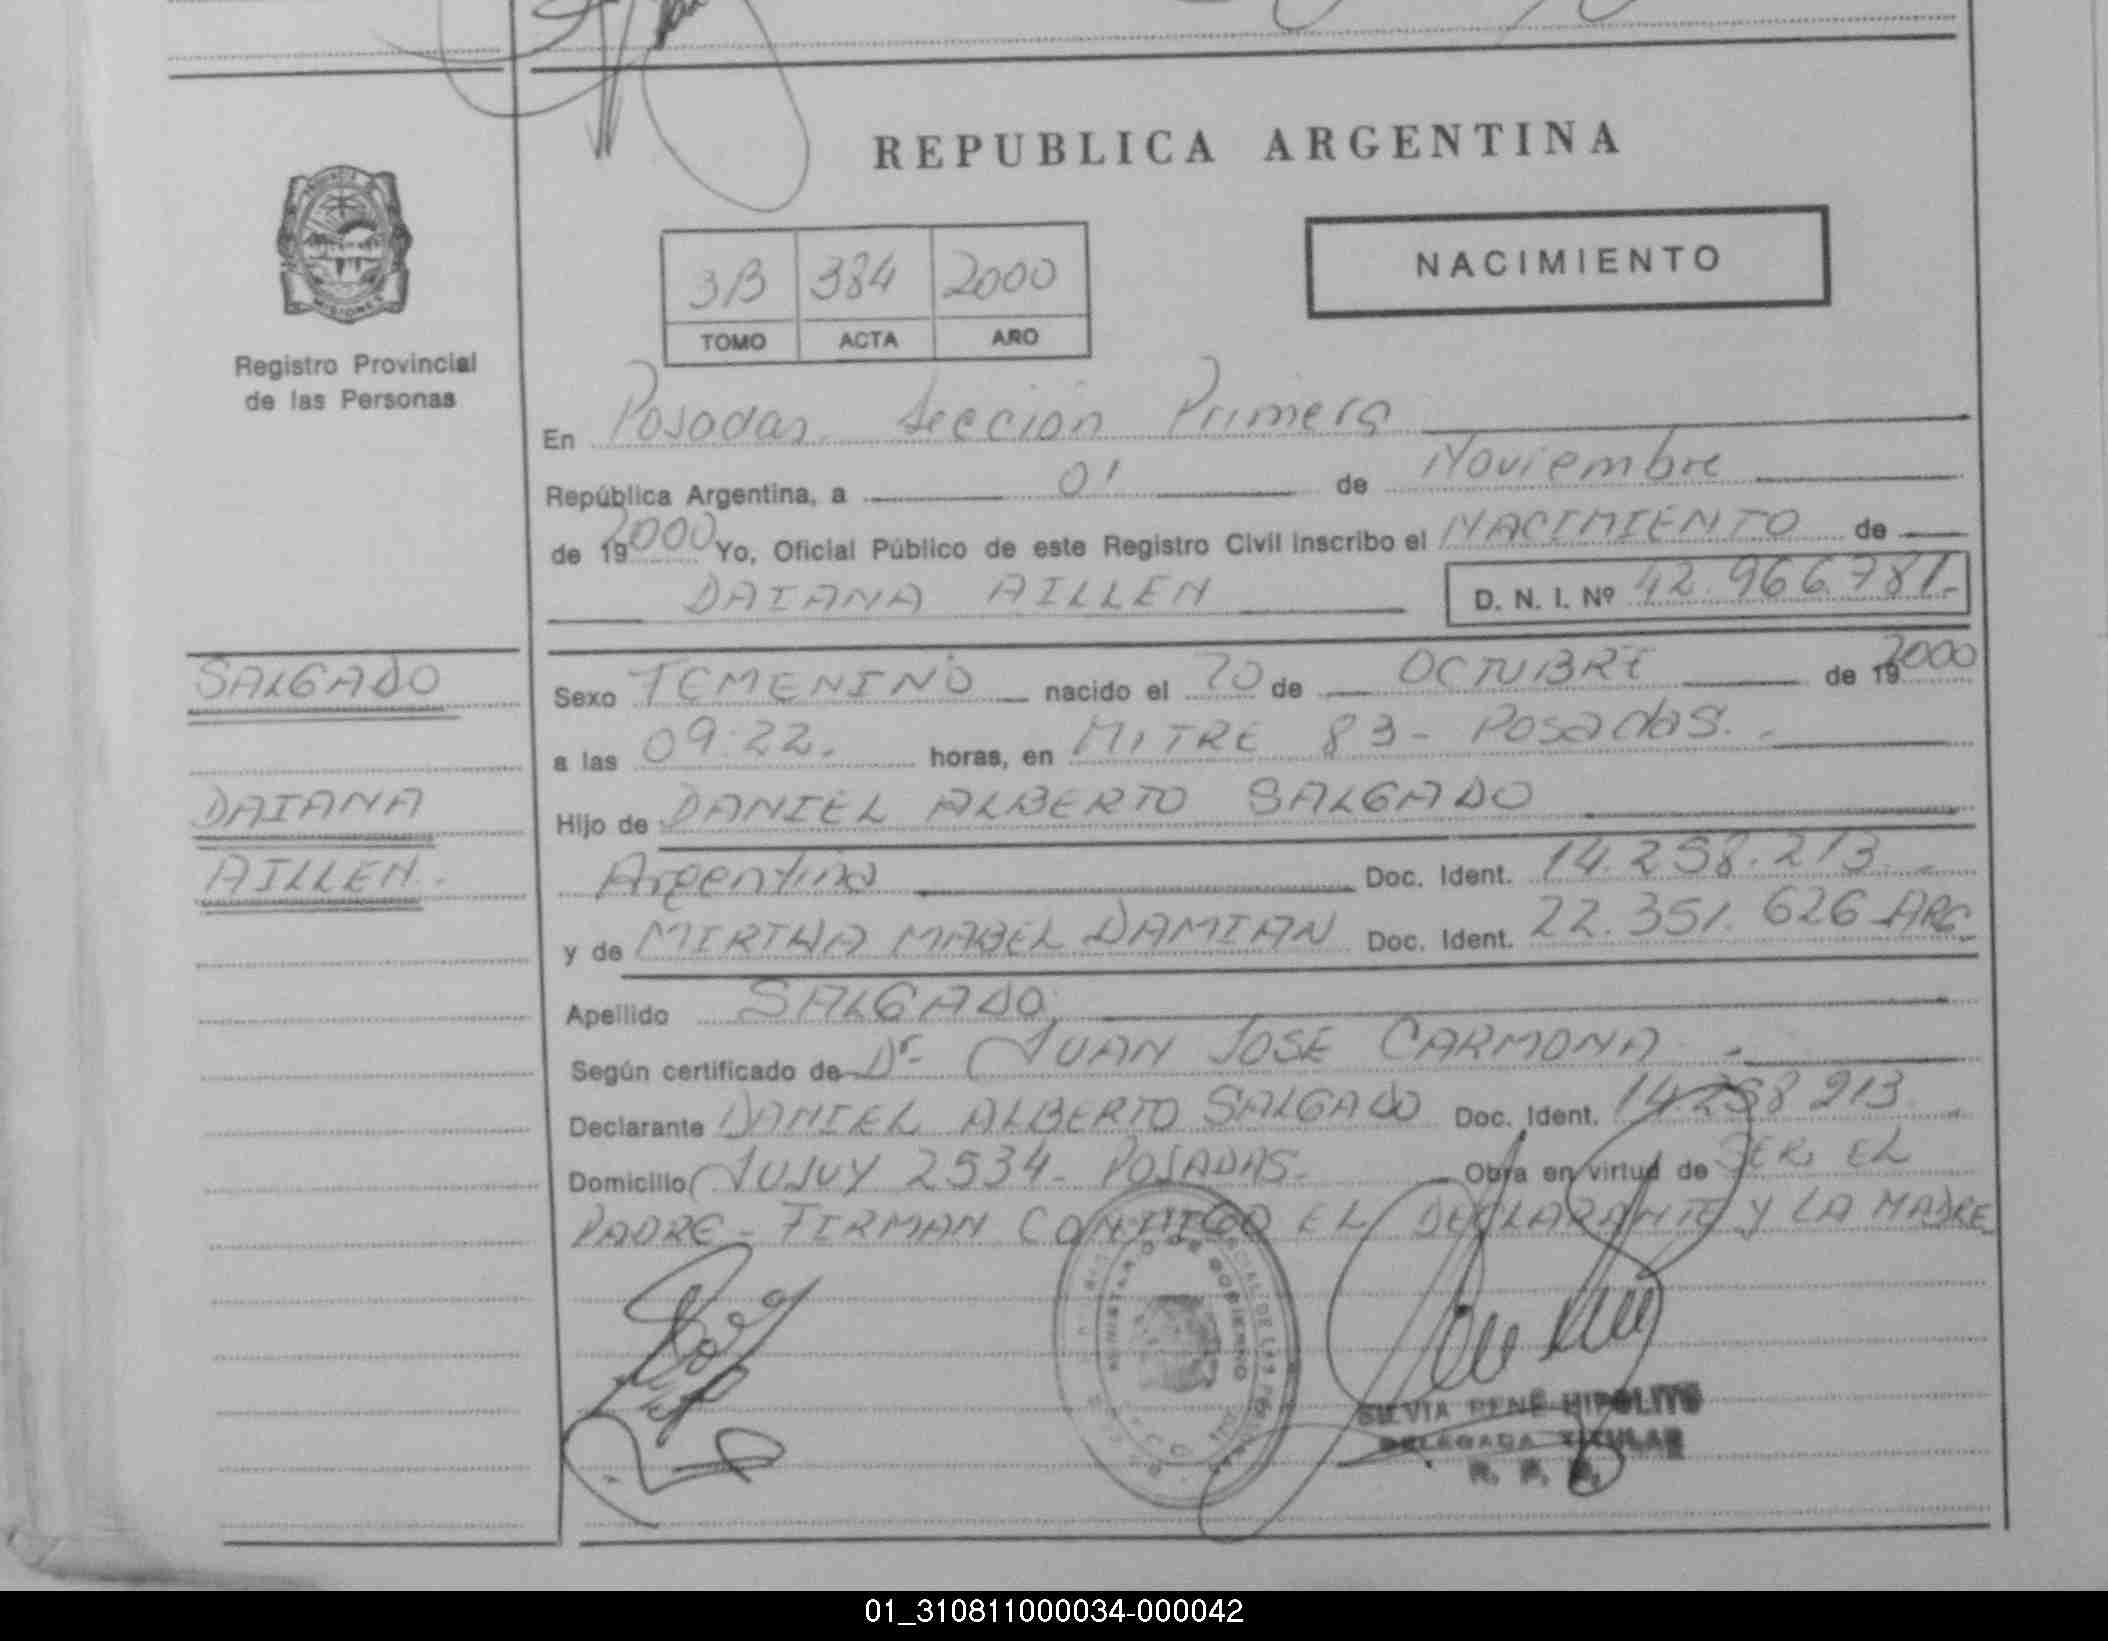 REPUBLICA ARGENTINA
NACIMIENTO
3B 384 2000
TOMO ACTA AÑO
Registro Provincial
de las Personas
En Posadas Seccion Primera
República Argentina, a 01 de Noviembre
de 19 2000 Yo, Oficial Público de este Registro Civil inscribo el NACIMIENTO de
DAIANA AILLEN D. N. I. Nº 42.966.781.-
SALGADO
DAIANA
AILLEN.
Sexo FEMENINO nacido el 20 de OCTUBRE de 19 2000
a las 09:22. horas, en MITRE 83 - Posadas. -
Hijo de DANIEL ALBERTO SALGADO
Argentina Doc. Ident. 14.258.213 -
y de MIRTHA MABEL DAMIAN Doc. Ident. 22.351.626 ARG.
Apellido SALGADO
Según certificado de Dr JUAN JOSE CARMONA -
Declarante DANIEL ALBERTO SALGADO Doc. Ident. 14.258 213 -
Domicilio JUJUY 2534 - POSADAS - Obra en virtud de SER EL
PADRE - FIRMAN CONMIGO EL DECLARANTE Y LA MADRE
MINISTERIO DE GOBIERNO
SILVIA RENÉ HIPOLITO
DELEGADA TITULAR
R. P. P.
01_310811000034-000042